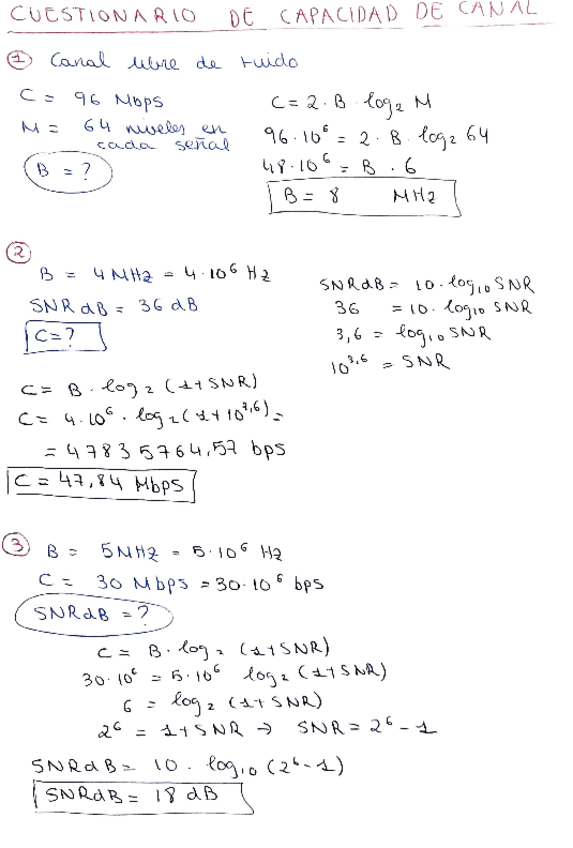 CUESTIONARIO DE CAPACIDAD DE CANAL
1 Canal libre de ruido
C = 96 Mbps
M = 64 niveles en
cada señal
B = ?
C = 2 · B · log₂ M
96·10⁶ = 2 · B · log₂ 64
48·10⁶ = B · 6
B = 8 MHz
2
B = 4 MHz = 4·10⁶ Hz
SNR dB = 36 dB
C = ?
SNR dB = 10 · log₁₀ SNR
36 = 10 · log₁₀ SNR
3,6 = log₁₀ SNR
10³,⁶ = SNR
C = B · log₂ (1+SNR)
C = 4·10⁶ · log₂ (1+10³,⁶) =
= 47835764,57 bps
C = 47,84 Mbps
3 B = 5MHz = 5·10⁶ Hz
C = 30 Mbps = 30·10⁶ bps
SNR dB = ?
C = B · log₂ (1+SNR)
30·10⁶ = 5·10⁶ log₂ (1+SNR)
6 = log₂ (1+SNR)
2⁶ = 1+SNR → SNR = 2⁶ - 1
SNR dB = 10 · log₁₀ (2⁶-1)
SNR dB = 18 dB